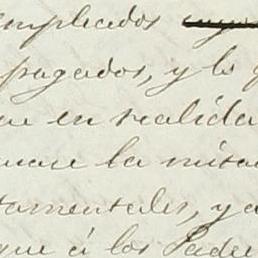 empleados
pagados, y lo
en realida
la mita
tamentales, y a
que á los Padre